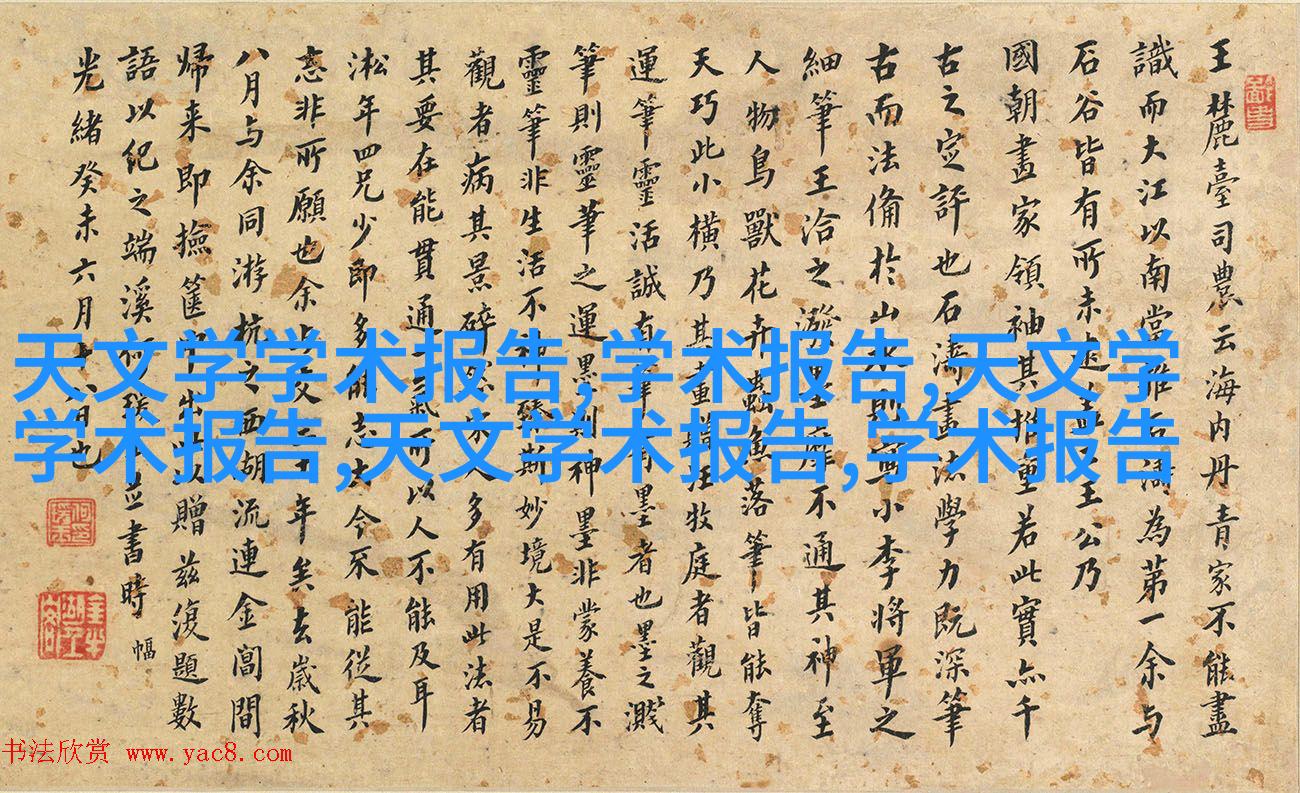 王麓臺司農云海內丹青家不能盡
識而大江以南當推石濤為第一余與
石谷皆有所未逮
王公乃
國朝畫家領袖其推重若此實為千
古之定評也石濤畫法學力既深筆
古而法備於山水則
小李將軍之
細筆王洽之潑墨靡不通其神至
人物鳥獸花卉蟲魚落筆皆能奪
天巧此小橫乃其
牧庭者觀其
運筆靈活誠有
墨者也墨之濺
筆則靈筆之運墨則神墨非蒙養不
靈筆非生活不神
妙境大是不易
觀者病其景碎然
人多有用此法者
其要在能貫通一氣所以人不能及耳
淞年四兄少即多
志大今不能從其
志非所願也余
年矣去歲秋
八月与余同游杭之西湖流連金閶間
歸来即撿篋中出
贈茲復題數
語以紀之端溪何
並書時
幅
光緒癸未六月十八
也
天文学学术报告,学术报告,天文学
学术报告,天文学学术报告,学术报告
书法欣赏 www.yac8.com